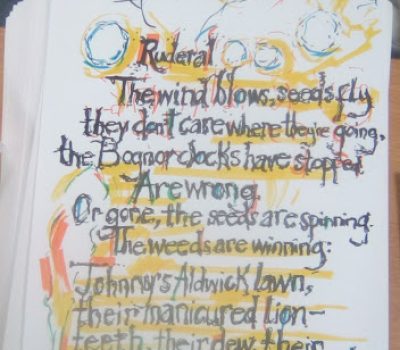 Ruderal
The wind blows, seeds fly
they don't care where they're going,
the Bognor clocks have stopped
Are wrong.
Or gone, the seeds are spinning.
The weeds are winning:
Johnny's Aldwick lawn,
their manicured lion-
teeth, their dew, their